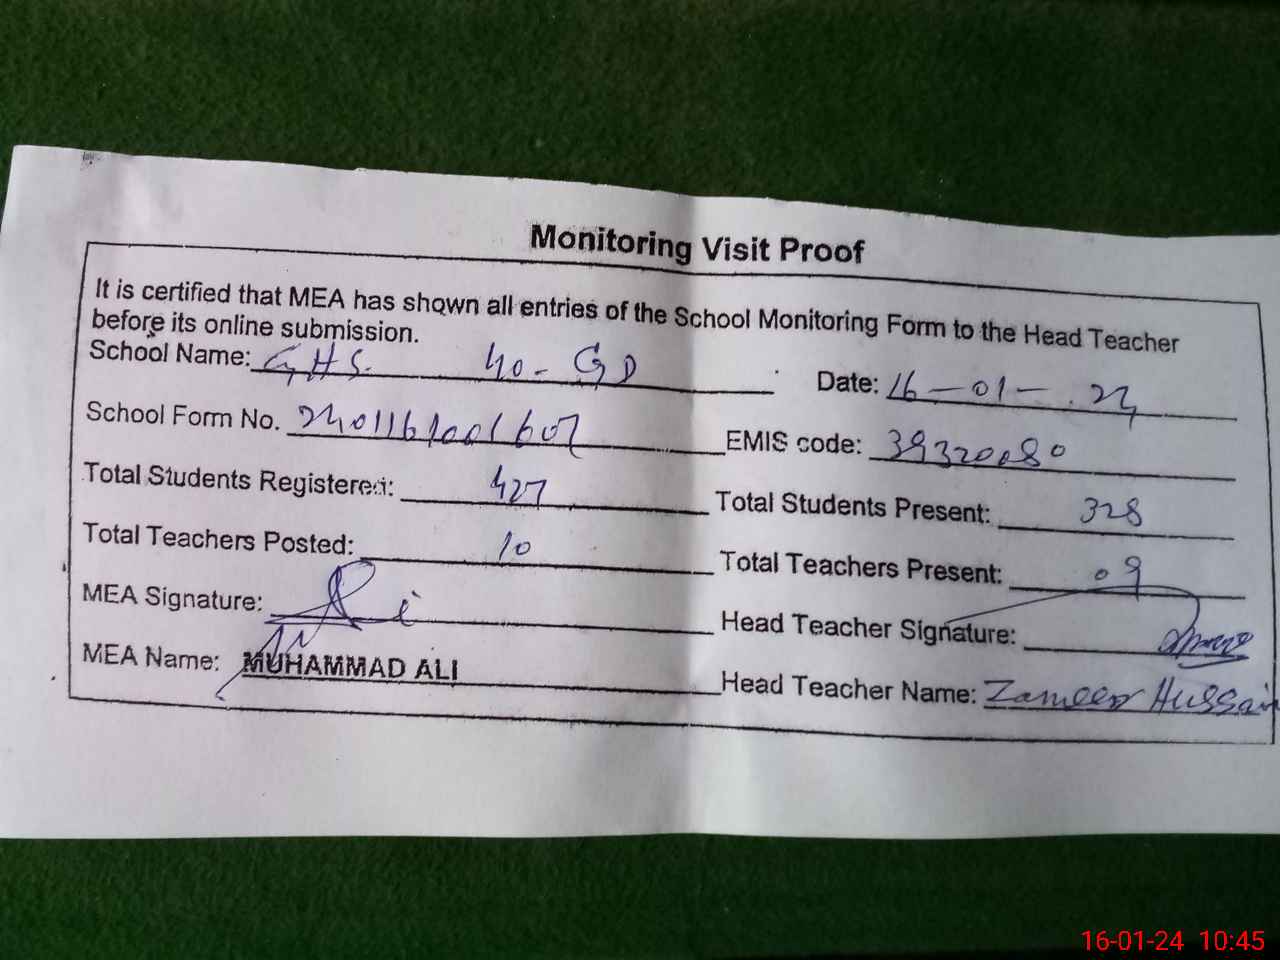 Monitoring Visit Proof
It is certified that MEA has shown all entries of the School Monitoring Form to the Head Teacher
before its online submission.
School Name: GHS. 40-GD Date: 16-01-24
School Form No. 2401161001607 EMIS code: 39320080
Total Students Registered: 427 Total Students Present: 328
Total Teachers Posted: 10 Total Teachers Present: 09
MEA Signature: Head Teacher Signature:
MEA Name: MUHAMMAD ALI Head Teacher Name: Zameer Hussain
16-01-24 10:45